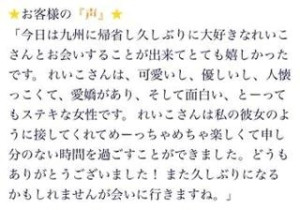 ⭐お客様の『声』⭐
「今日は九州に帰省し久しぶりに大好きなれいこ
さんとお会いすることが出来てとても嬉しかった
です。 れいこさんは、可愛いし、優しいし、人懐
っこくて、愛嬌があり、そして面白い、とーって
もステキな女性です。 れいこさんは私の彼女のよ
うに接してくれてめーっちゃめちゃ楽しくて申し
分のない時間を過ごすことができました。どうも
ありがとうございました！ また久しぶりになる
かもしれませんが会いに行きますね。」